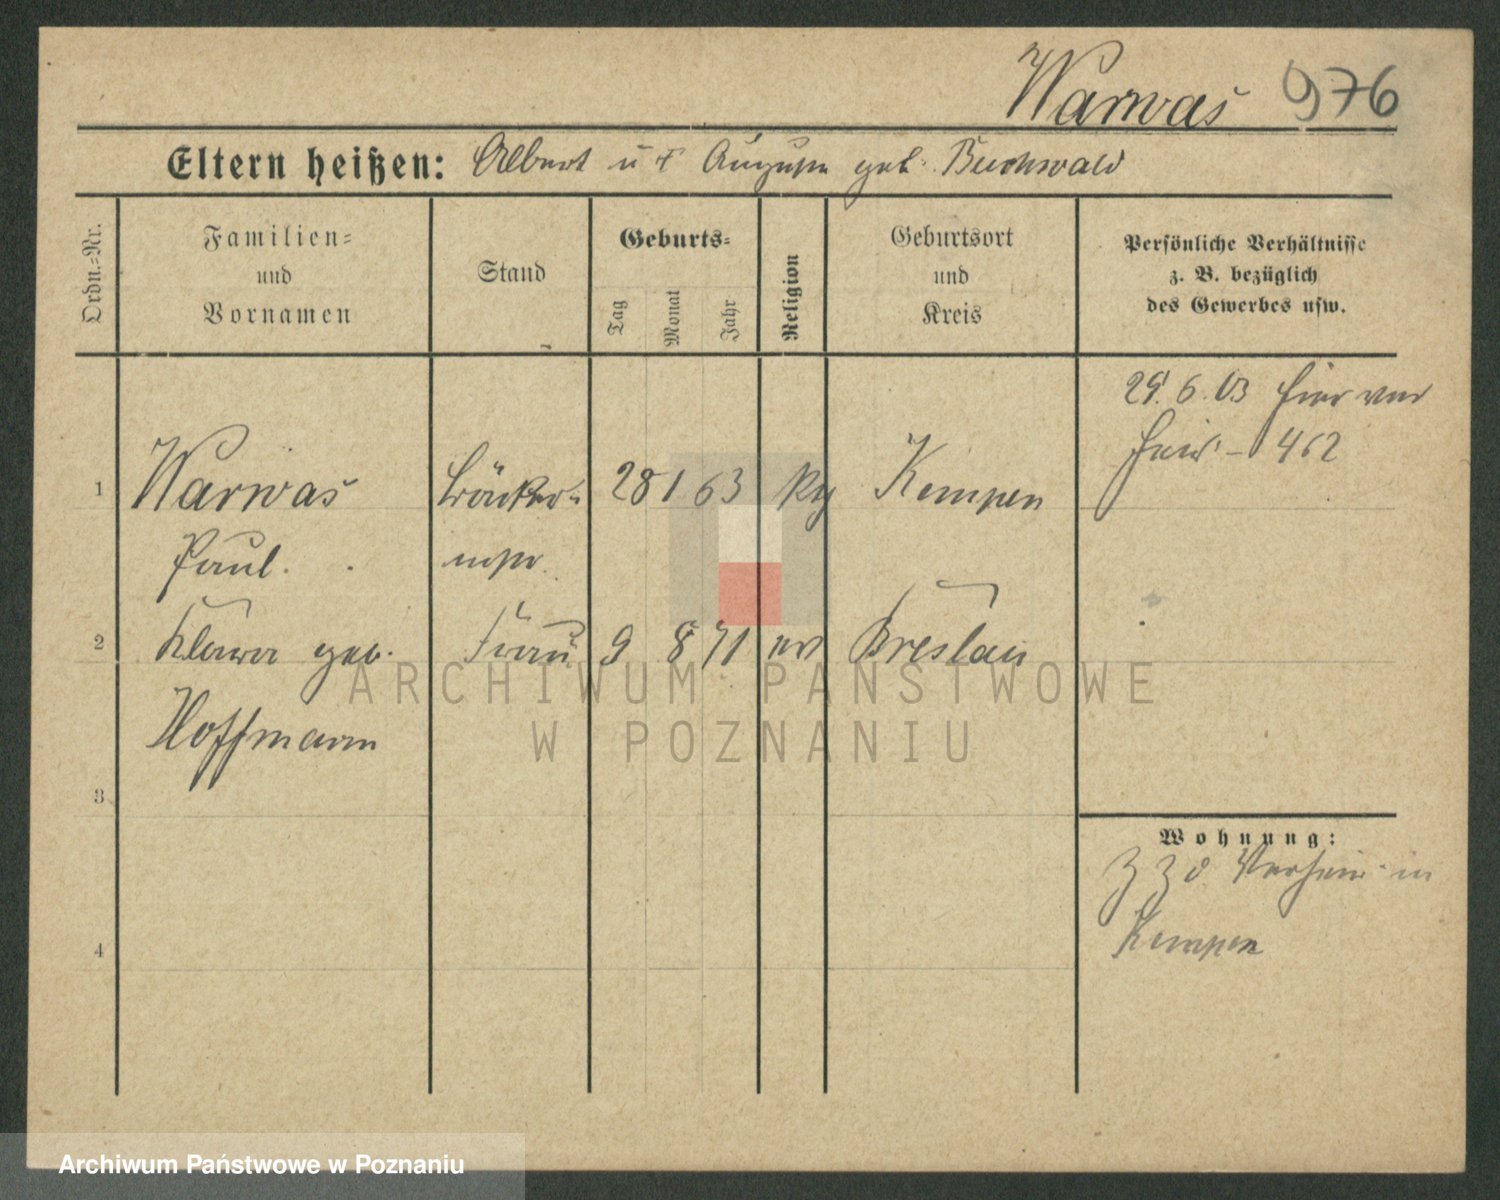 Warwas 976
Eltern heißen: Albert u † Auguste geb. Buchwald
Ordn.-Nr.
Familien- und Vornamen
Stand
Geburts-
Tag
Monat
Jahr
Religion
Geburtsort und Kreis
Persönliche Verhältnisse
z. B. bezüglich
des Gewerbes usw.
29. 6. 03 hier
462
1 Warwas Bäcker- 28 1 63 Kempen
Paul. mstr.
2 geb. Frau 9 8 71 ev Breslau
Hoffmann
3
Wohnung:
in
Kempen
4
ARCHIWUM PAŃSTWOWE
W POZNANIU
Archiwum Państwowe w Poznaniu